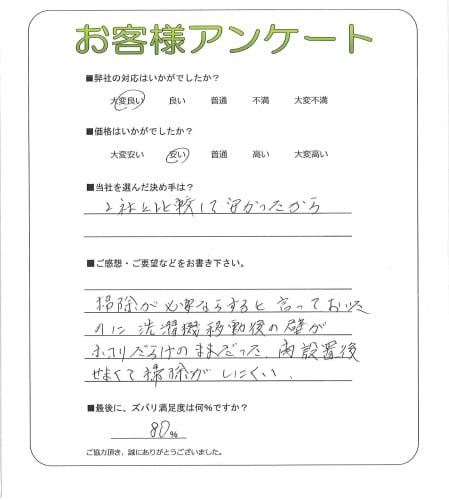 お客様アンケート
■弊社の対応はいかがでしたか？
大変良い 良い 普通 不満 大変不満
■価格はいかがでしたか？
大変安い 安い 普通 高い 大変高い
■当社を選んだ決め手は？
2社と比較して安かったから
■ご感想・ご要望などをお書き下さい。
掃除が必要ならすると言っておいた
のに洗濯機移動後の壁が
ホコリだらけのままだった、再設置後
せまくて掃除がしにくい、
■最後に、ズバリ満足度は何%ですか？
80%
ご協力頂き、誠にありがとうございました。